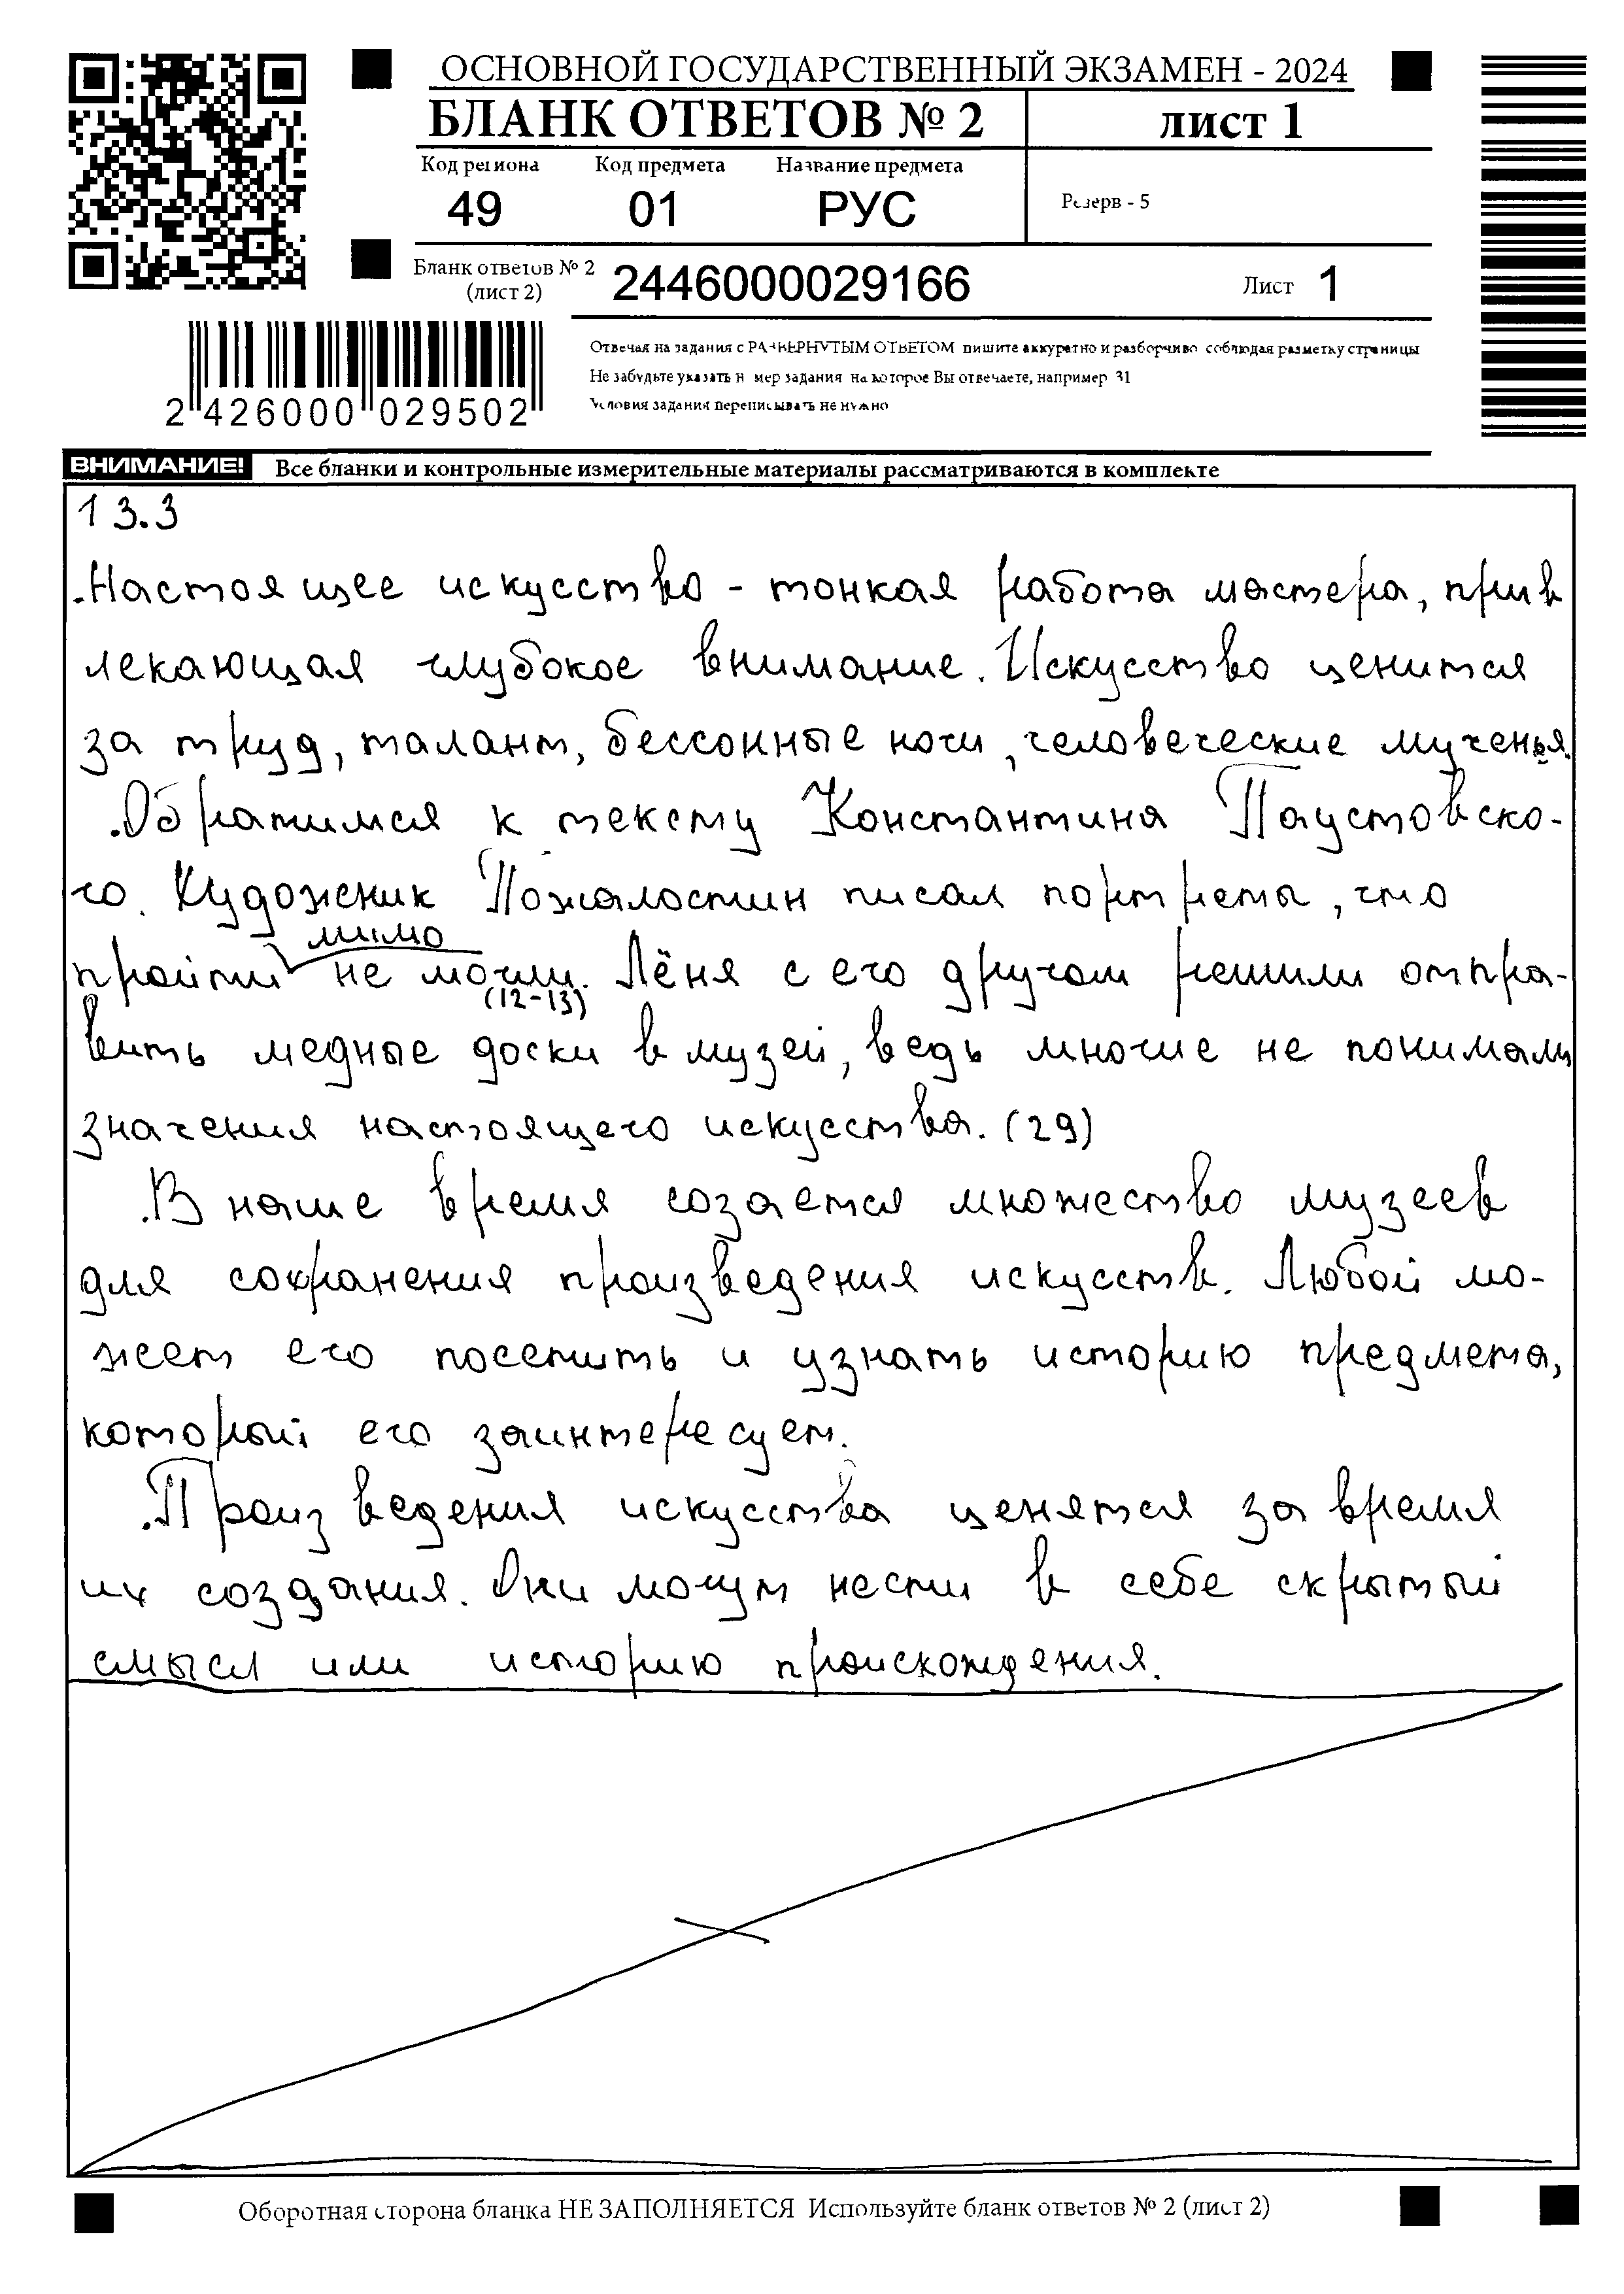 ОСНОВНОЙ ГОСУДАРСТВЕННЫЙ ЭКЗАМЕН - 2024
БЛАНК ОТВЕТОВ № 2 лист 1
Код региона Код предмета Название предмета
49 01 РУС Резерв - 5
Бланк ответов № 2 (лист 2) 2446000029166 Лист 1
Отвечая на задания с РАЗВЕРНУТЫМ ОТВЕТОМ пишите аккуратно и разборчиво соблюдая разметку страницы
Не забудьте указать номер задания на которое Вы отвечаете, например 31
Условия задания переписывать не нужно
2 426000 029502
ВНИМАНИЕ! Все бланки и контрольные измерительные материалы рассматриваются в комплекте
13.3
Настоящее искусство - тонкая работа мастера, прив
лекающая глубокое внимание. Искусство ценится
за труд, талант, бессонные ночи, человеческие мученья.
Обратимся к тексту Константина Паустовско-
го. Художник Пожалостин писал портреты, что
пройти мимо не могли. (12-13) Лёня с его другом решили отпра-
вить медные доски в музей, ведь многие не понимали
значения настоящего искусства. (29)
В наше время созается множество музеев
для сохранения произведения искусств. Любой мо-
жет его посетить и узнать историю предмета,
который его заинтересует.
Произведения искусства ценятся за время
их создания. Они могут нести в себе скрытый
смысл или историю происхождения.
Оборотная сторона бланка НЕ ЗАПОЛНЯЕТСЯ Используйте бланк ответов № 2 (лист 2)